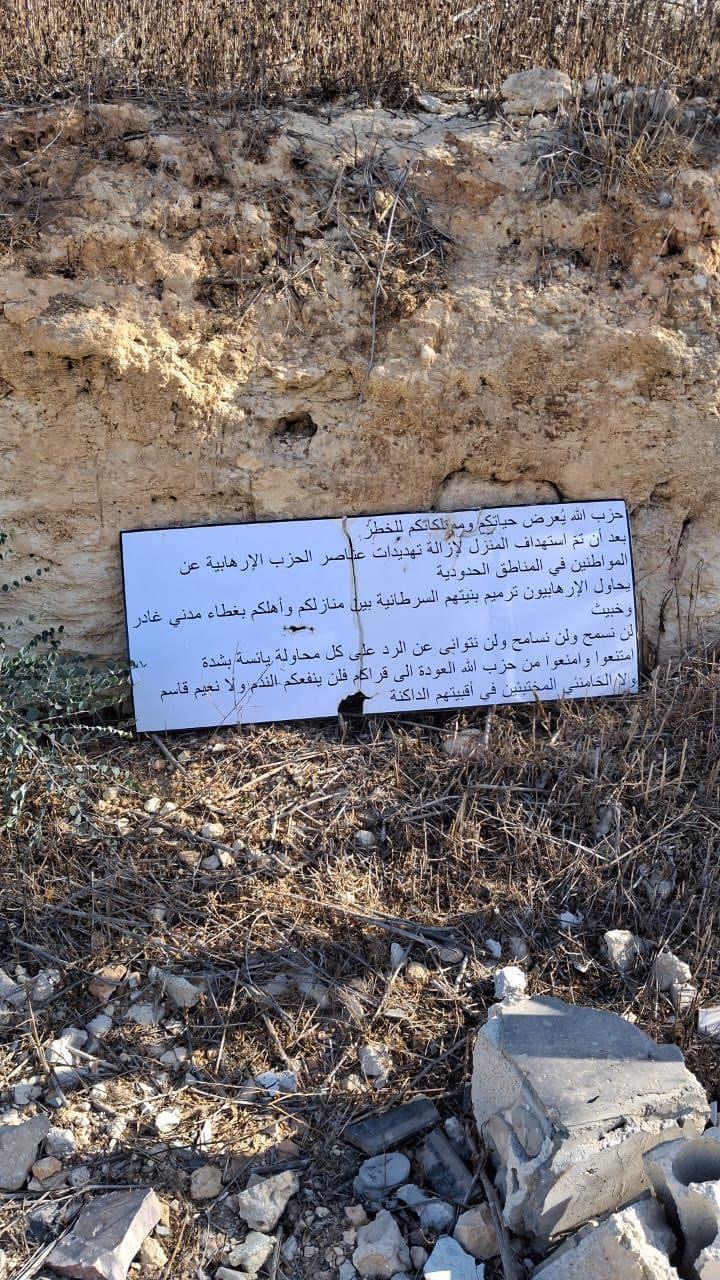 حزب الله يُعرض حياتكم وممتلكاتكم للخطر
بعد أن تمّ استهداف المنزل لإزالة تهديدات عناصر الحزب الإرهابية عن
المواطنين في المناطق الحدودية
يحاول الإرهابيون ترميم بنيتهم السرطانية بين منازلكم وأهلكم بغطاء مدني غادر
وخبيث
لن نسمح ولن نسامح ولن نتوانى عن الرد على كل محاولة يائسة بشدة
امتنعوا وامنعوا من حزب الله العودة الى قراكم فلن ينفعكم الندم ولا نعيم قاسم
ولا الخامنئي المختبئين في أقبيتهم الداكنة